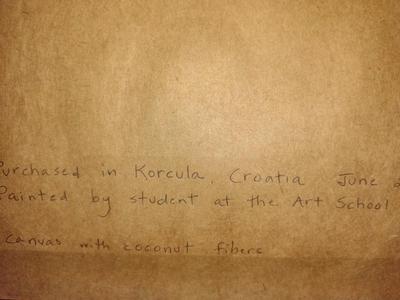 Purchased in Korcula, Croatia June
Painted by student at the Art School
canvas with coconut fibers